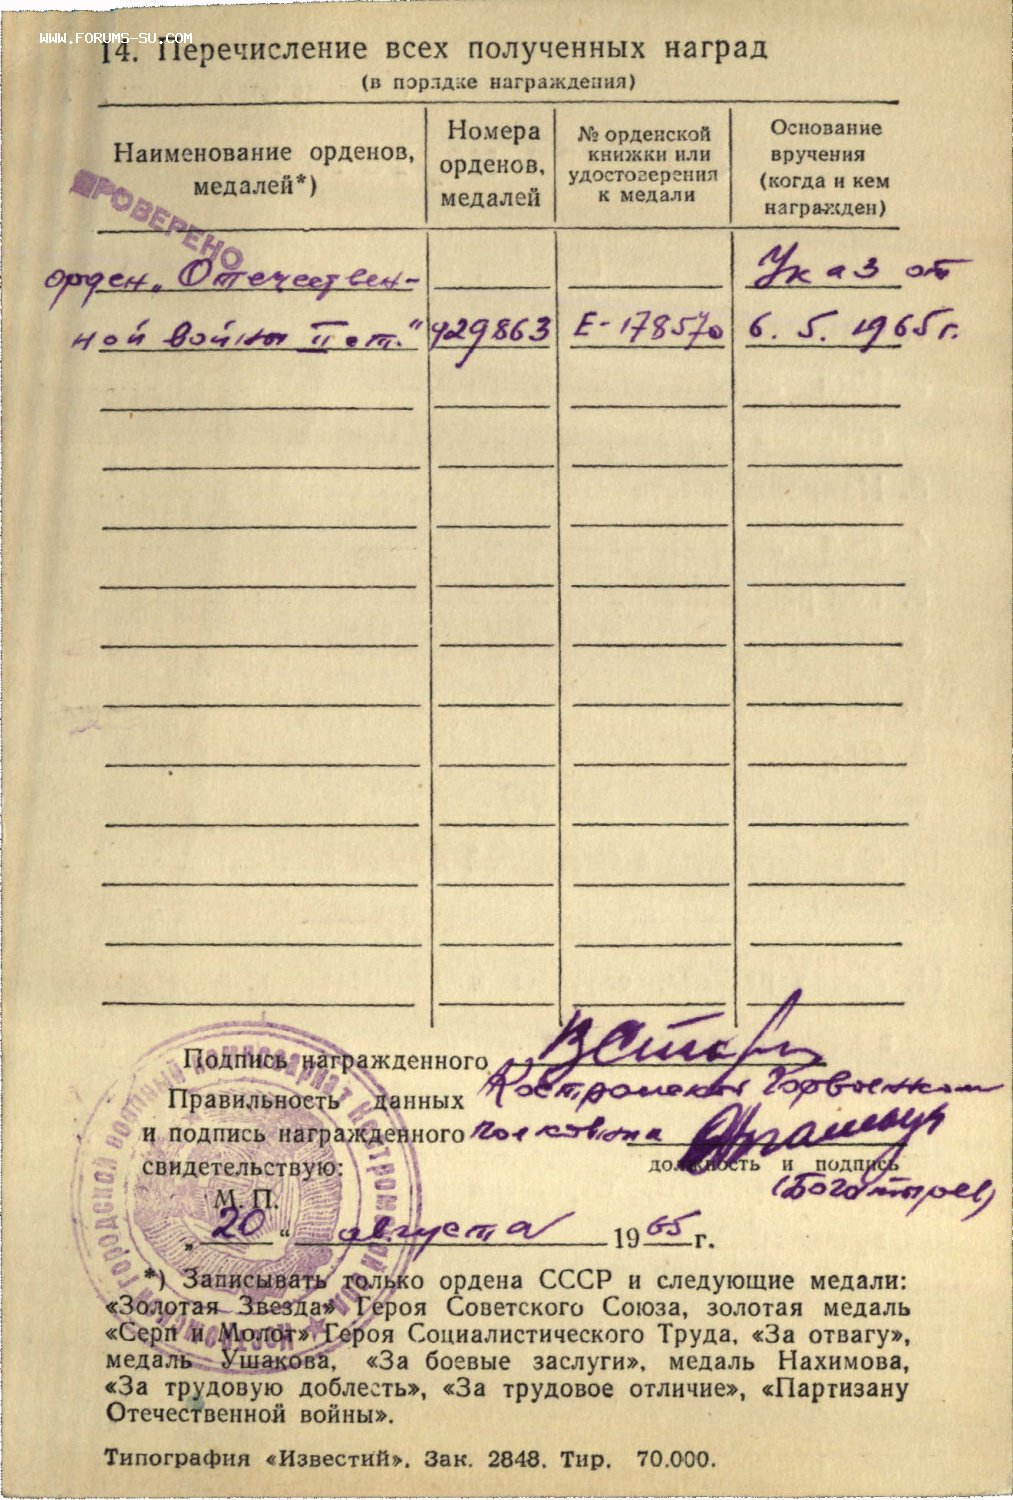 WWW.FORUMS-SU.COM
14. Перечисление всех полученных наград
(в порядке награждения)
Наименование орденов, медалей*)
Номера орденов, медалей
№ орденской книжки или удостоверения к медали
Основание вручения (когда и кем награжден)
ПРОВЕРЕНО
орден „Отечествен- Указ от
ной войны II ст.“ 429863 Е-178570 6. 5. 1965 г.
Подпись награжденного
Правильность данных Костромской Горвоенком
и подпись награжденного полковник
свидетельствую: должность и подпись
М. П. (Богатырев)
„20“ августа 1965 г.
*) Записывать только ордена СССР и следующие медали:
«Золотая Звезда» Героя Советского Союза, золотая медаль
«Серп и Молот» Героя Социалистического Труда, «За отвагу»,
медаль Ушакова, «За боевые заслуги», медаль Нахимова,
«За трудовую доблесть», «За трудовое отличие», «Партизану
Отечественной войны».
Типография «Известий». Зак. 2848. Тир. 70.000.